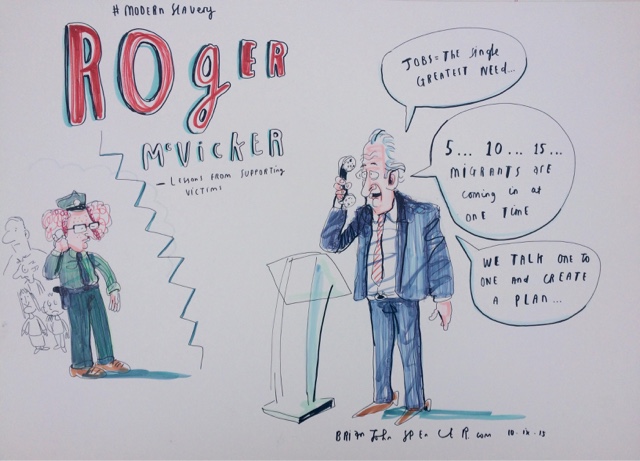 # MODERN SLAVERY
ROGER
McVICKER
— LESSONS FROM SUPPORTING
VICTIMS
JOBS = THE SINGLE
GREATEST NEED...
5... 10... 15...
MIGRANTS ARE
COMING IN AT
ONE TIME
WE TALK ONE TO
ONE AND CREATE
A PLAN...
BRIAN John SPENCER.com